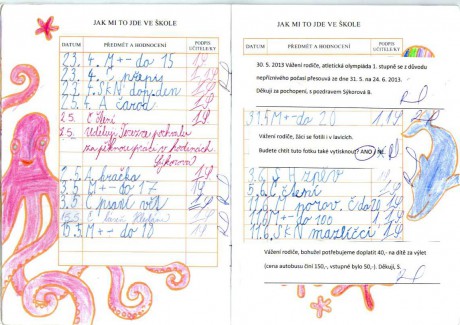 JAK MI TO JDE VE ŠKOLE
DATUM PŘEDMĚT A HODNOCENÍ PODPIS UČITELE/KY
23. 4. M +- do 15
23. 4. Č přepis
23. 4. SKN dop. den
25. 4. A čára
2.5. Č čtení
2.5. Uděluji Terezce pochvalu
za pěknou práci v hodinách
Sýkorová
2.5. A hračka
3.5. M +- do 17
3.5. Č psaní vět
15.5. Č
15.5. M +- do 18
JAK MI TO JDE VE ŠKOLE
DATUM PŘEDMĚT A HODNOCENÍ PODPIS UČITELE/KY
30. 5. 2013 Vážení rodiče, atletická olympiáda 1. stupně se z důvodu
nepříznivého počasí přesouvá ze dne 31. 5 na 24. 6. 2013.
Děkuji za pochopení, s pozdravem Sýkorová B.
31.5. M +- do 20
Vážení rodiče, žáci se fotili v lavicích.
Budete chtít tuto fotku také vytisknout? ANO / NE
3.6. A zpěv
5.6. Č čtení
M porov. č. do 20
M +- do 100
SKN mazlíčci
Vážení rodiče, bohužel potřebujeme doplatit 40,- na dítě za výlet
(cena autobusu činí 150,- vstupné bylo 50,-). Děkuji, S.